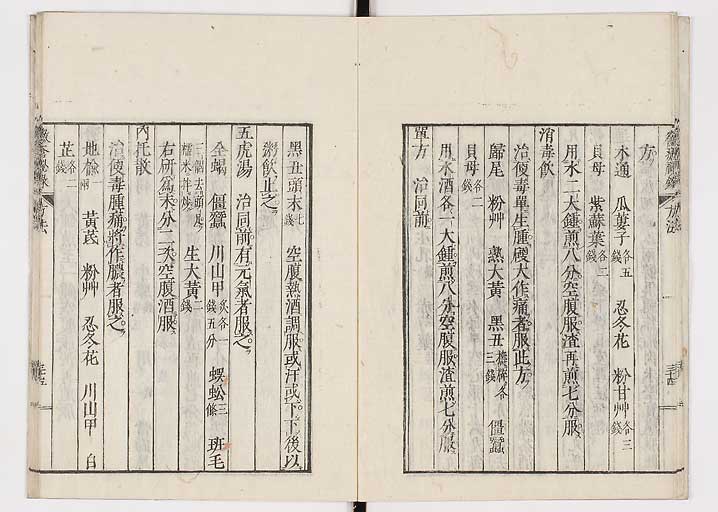 方
木通 瓜蔞子各五錢 忍冬花 粉甘艸各三錢
貝母 紫蘇葉各二錢
用水二大鍾煎八分空腹服渣再煎七分服
消毒飲
治便毒單生腫硬大作痛者服此方
歸尾 粉艸 熟大黃 黑丑 各三錢 僵蠶
貝母各二錢
用水酒各一大鍾煎八分空腹服渣煎七分服
單方 治同前
黑丑頭末七錢 空腹熱酒調服或汗或下下後以
粥飲止之
五虎湯 治同前有元氣者服之
全蝎 僵蠶 川山甲炙各一錢五分 蜈蚣三條 班毛
三個去頭足糯米炒 生大黃二錢
右研為末分二次空腹酒服
內托散
治便毒腫痛將作膿者服之
地榆 黃芪 粉艸 忍冬花 川山甲 白
芷各二錢
方法